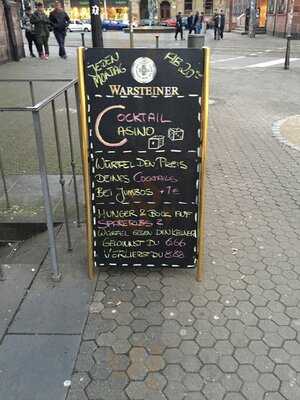 JEDEN
MONTAG
WARSTEINER
COCKTAIL
CASINO
WÜRFEL DEN PREIS
DEINES COCKTAILS
BEI JUMBOS + 1€
HUNGER & BOCK AUF
SPARERIBS ?
WÜRFEL GEGEN DEN KELLNER
GEWINNST DU 6.66
VERLIERST DU 8.88